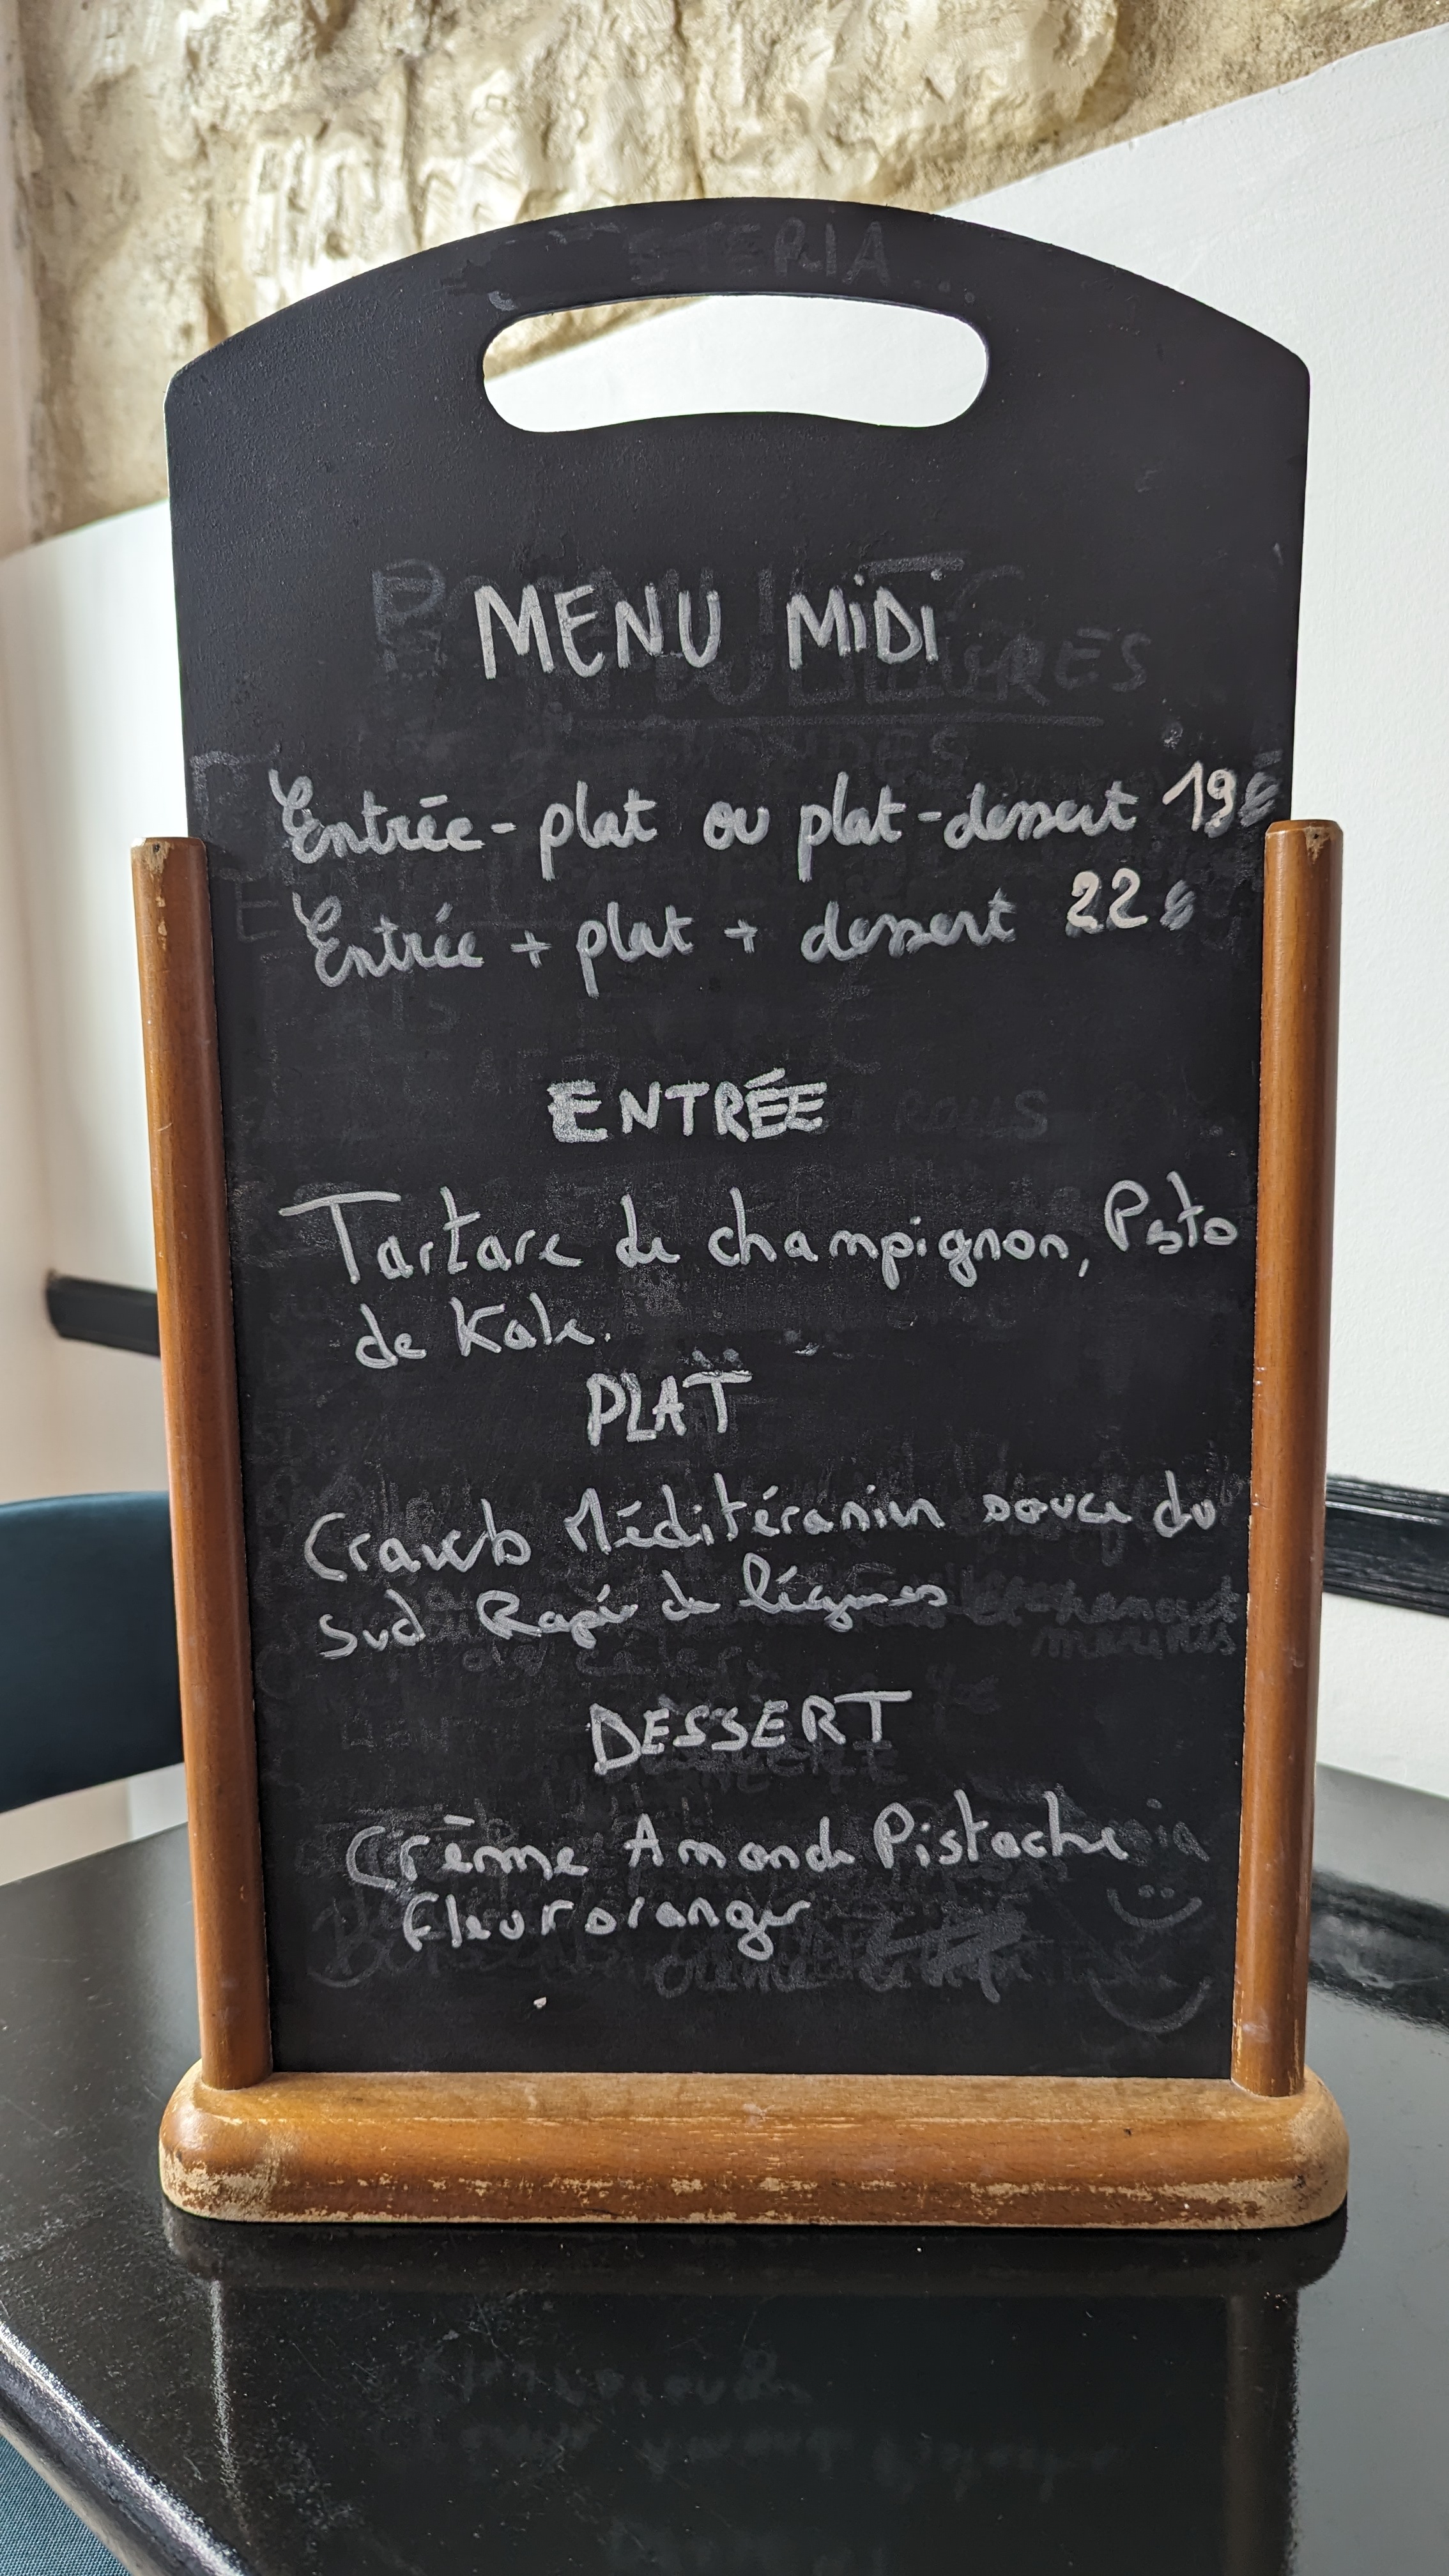 MENU MiDi
Entrée - plat ou plat - dessert 19€
Entrée + plat + dessert 22€
ENTRÉE
Tartare de champignon, Pesto
de Kale.
PLAT
Méditéranien sauce du
sud Rapé de légumes
DESSERT
Crème Amande Pistache
fleur oranger